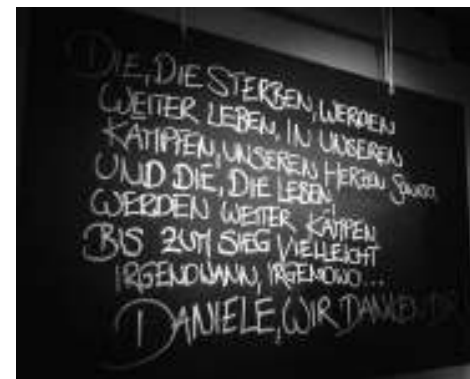 DIE, DIE STERBEN, WERDEN
WEITER LEBEN, IN UNSEREN
KÄMPFEN, UNSEREN HERZEN
UND DIE, DIE LEBEN,
WERDEN WEITER KÄMPFEN
BIS ZUM SIEG VIELLEICHT
IRGENDWANN, IRGENDWO...
DANIELE, WIR DANKEN DIR